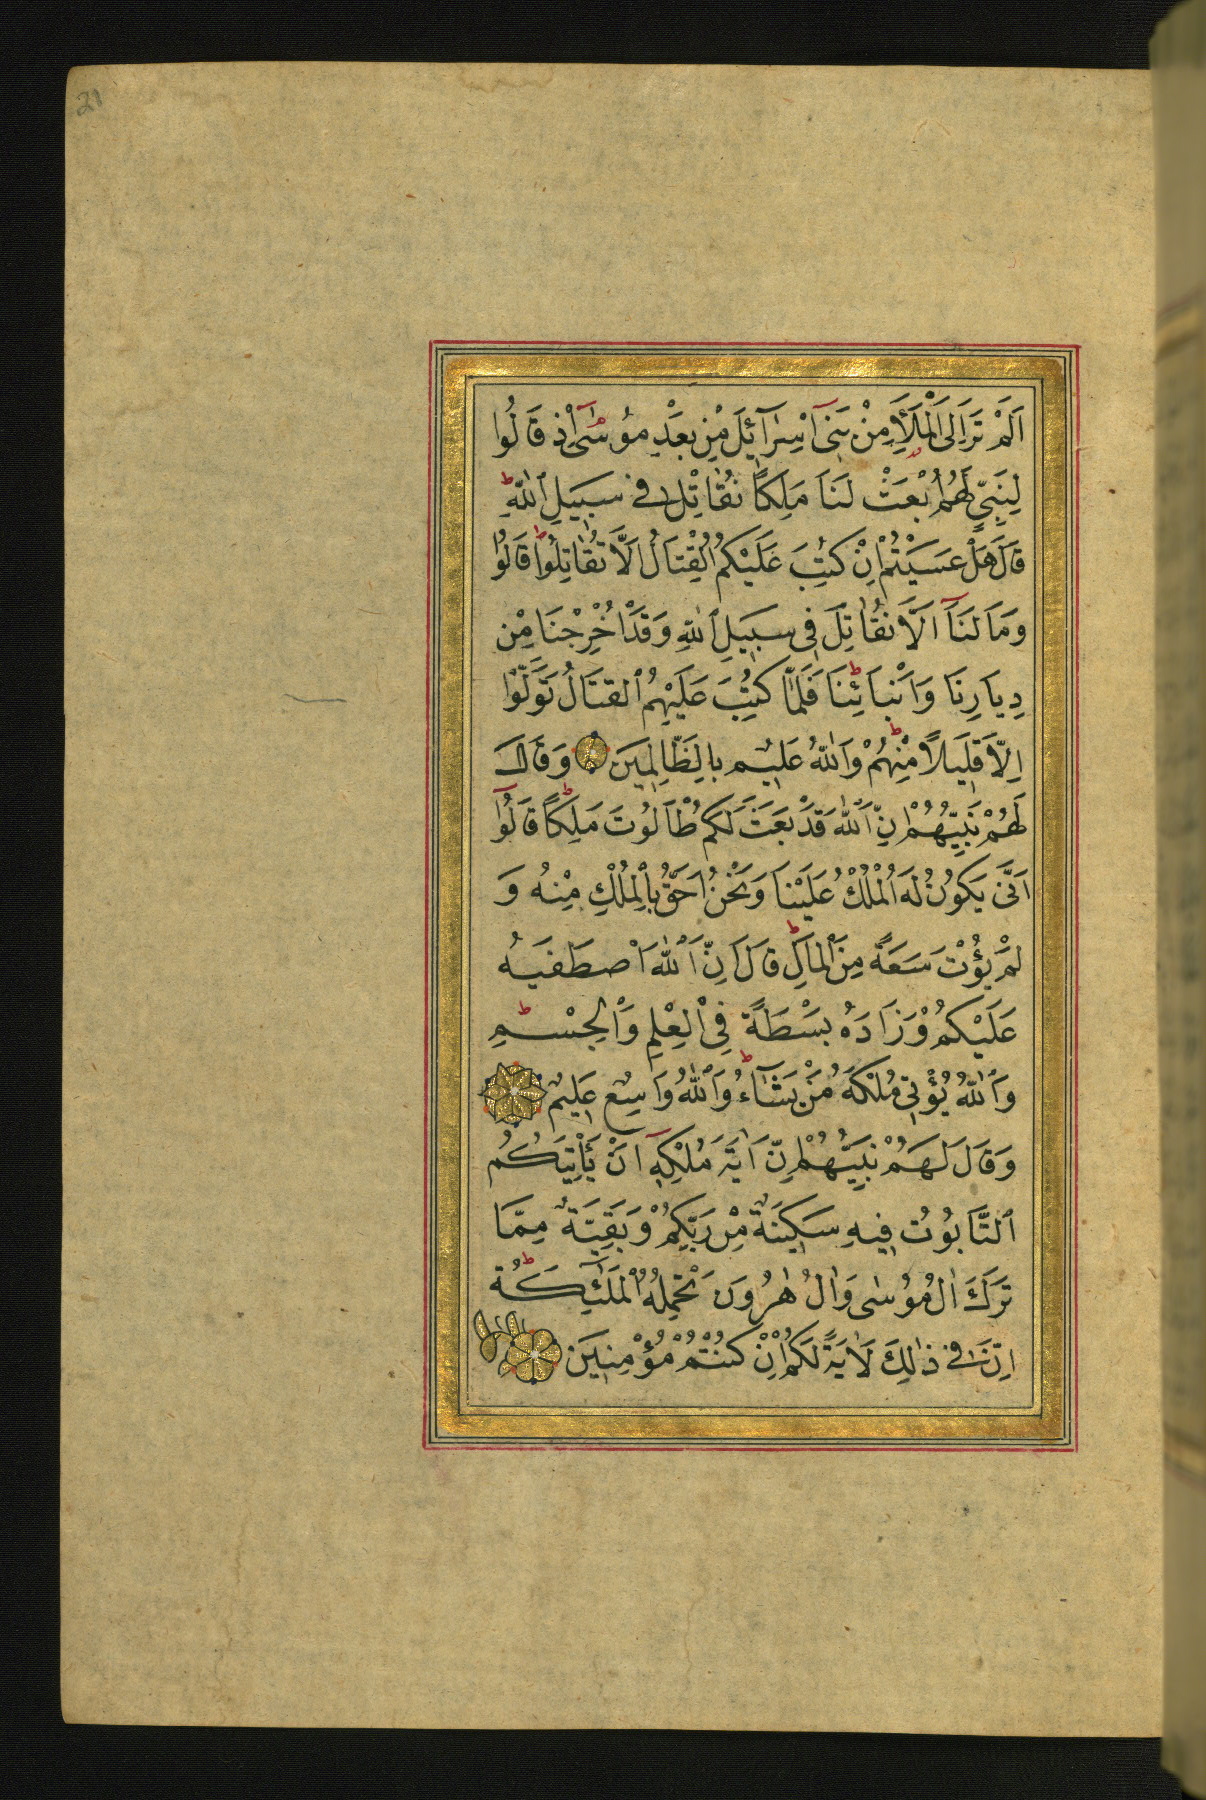 21
اَلَمْ تَرَ اِلَى الْمَلَأِ مِنْ بَنِىٓ اِسْرَآئِلَ مِنْ بَعْدِ مُوسٰىٓ اِذْ قَالُوا
لِنَبِيٍّ لَهُمُ ابْعَثْ لَنَا مَلِكًا نُقَاتِلْ فِى سَبِيلِ اللّٰهِ ط
قَالَ هَلْ عَسَيْتُمْ اِنْ كُتِبَ عَلَيْكُمُ الْقِتَالُ اَلَّا تُقَاتِلُوا ط قَالُوا
وَمَا لَنَآ اَلَّا نُقَاتِلَ فِى سَبِيلِ اللّٰهِ وَقَدْ اُخْرِجْنَا مِنْ
دِيَارِنَا وَاَبْنَائِنَا ط فَلَمَّا كُتِبَ عَلَيْهِمُ الْقِتَالُ تَوَلَّوْا
اِلَّا قَلِيلًا مِنْهُمْ ط وَاللّٰهُ عَلِيمٌ بِالظَّالِمِينَ وَقَالَ
لَهُمْ نَبِيُّهُمْ اِنَّ اللّٰهَ قَدْ بَعَثَ لَكُمْ طَالُوتَ مَلِكًا ط قَالُوٓا
اَنّٰى يَكُونُ لَهُ الْمُلْكُ عَلَيْنَا وَنَحْنُ اَحَقُّ بِالْمُلْكِ مِنْهُ وَ
لَمْ يُؤْتَ سَعَةً مِنَ الْمَالِ ط قَالَ اِنَّ اللّٰهَ اصْطَفٰيهُ
عَلَيْكُمْ وَزَادَهُ بَسْطَةً فِى الْعِلْمِ وَالْجِسْمِ ط
وَاللّٰهُ يُؤْتِى مُلْكَهُ مَنْ يَشَآءُ ط وَاللّٰهُ وَاسِعٌ عَلِيمٌ
وَقَالَ لَهُمْ نَبِيُّهُمْ اِنَّ اٰيَةَ مُلْكِهِٓ اَنْ يَأْتِيَكُمُ
التَّابُوتُ فِيهِ سَكِينَةٌ مِنْ رَبِّكُمْ وَبَقِيَّةٌ مِمَّا
تَرَكَ اٰلُ مُوسٰى وَاٰلُ هٰرُونَ تَحْمِلُهُ الْمَلٰٓئِكَةُ ط
اِنَّ فِى ذٰلِكَ لَاٰيَةً لَكُمْ اِنْ كُنْتُمْ مُؤْمِنِينَ